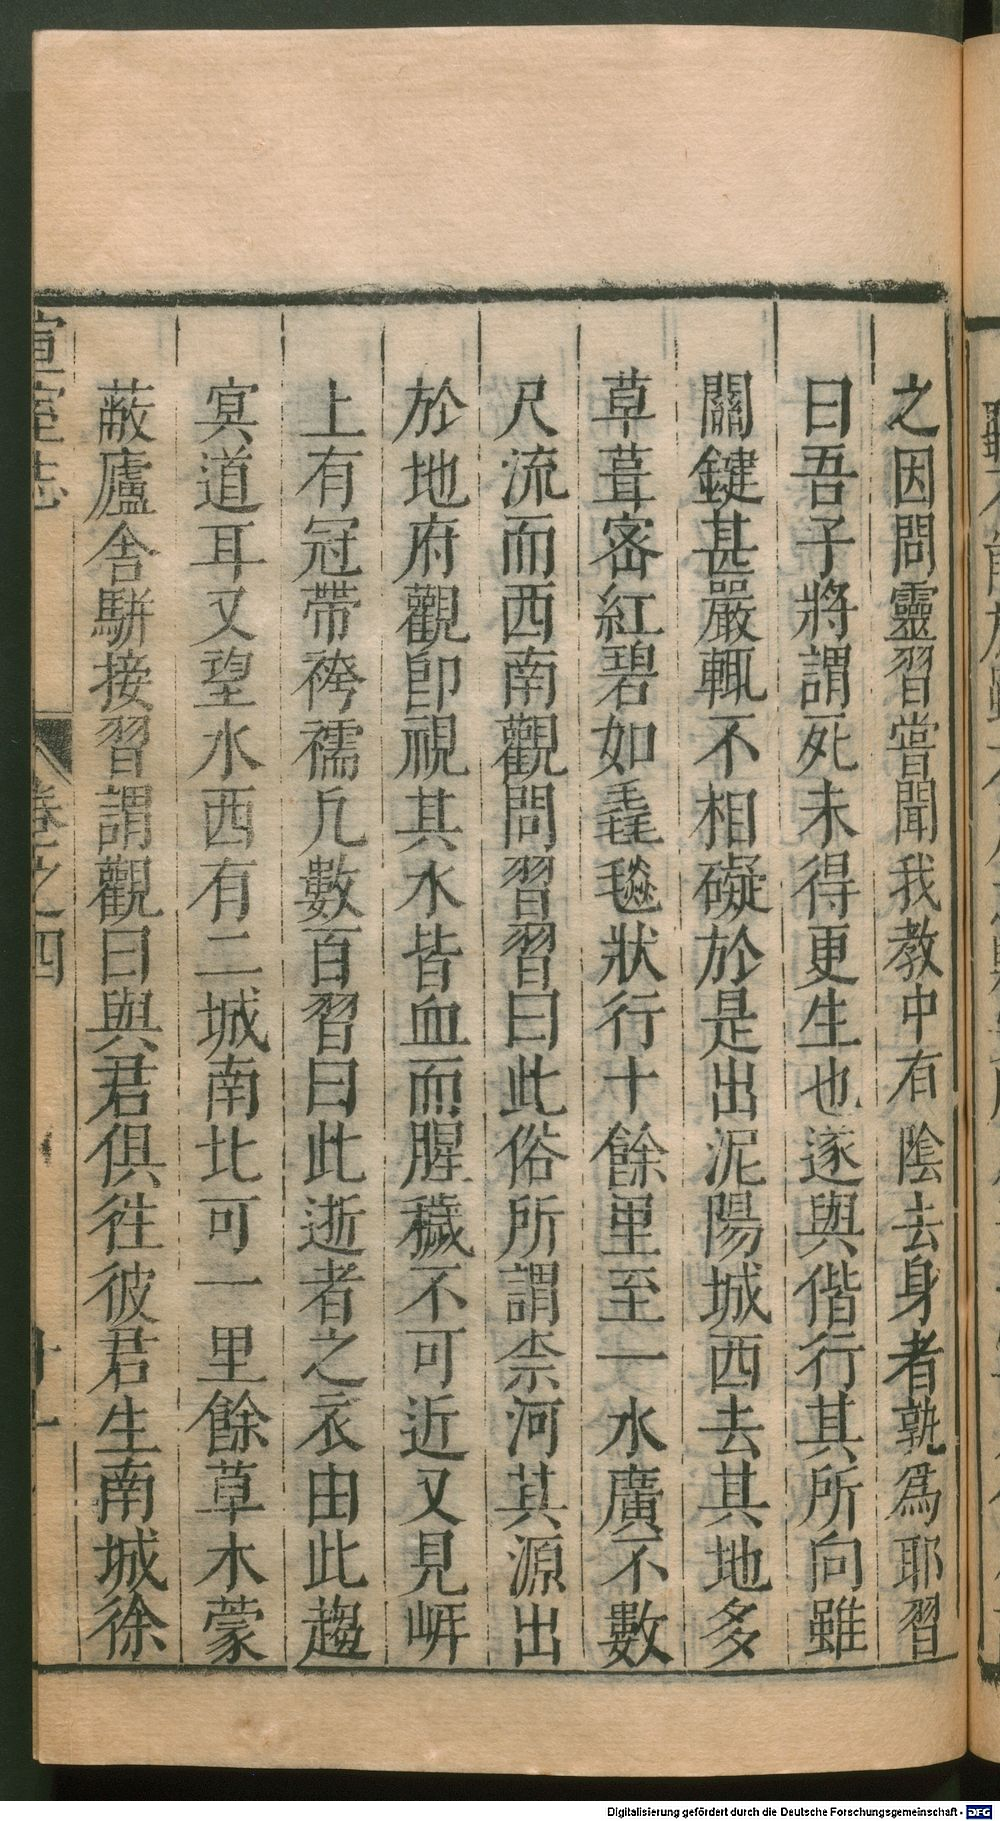 之因問靈習嘗聞我教中有陰去身者孰爲耶習
曰吾子將謂死未得更生也遂與偕行其所向雖
關鍵甚嚴輒不相礙於是出泥陽城西去其地多
草茸宻紅碧如毳毯狀行十餘里至一水廣不數
尺流而西南觀問習習曰此俗所謂柰河其源出
於地府觀卽視其水皆血而腥穢不可近又見岍
上有冠帶袴襦凡數百習曰此逝者之衣由此趨
冥道耳又望水西有二城南北可一里餘草木蒙
蔽廬舍駢接習謂觀曰與君俱徃彼君生南城徐
宣室志
卷之四
Digitalisierung gefördert durch die Deutsche Forschungsgemeinschaft - DFG